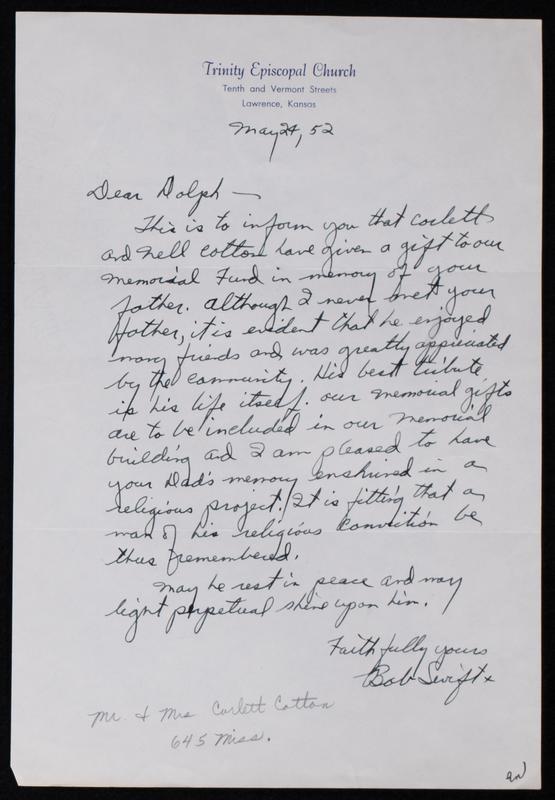 Trinity Episcopal Church
Tenth and Vermont Streets
Lawrence, Kansas
May 24, 52
Dear Dolph —
This is to inform you that Corlett
and Nell Cotton have given a gift to our
Memorial Fund in memory of your
father. Although I never met your
father, it is evident that he enjoyed
many friends and was greatly appreciated
by the community. His best tribute
is his life itself. Our memorial gifts
are to be included in our Memorial
building and I am pleased to have
your Dad's memory enshrined in a
religious project. It is fitting that a
man of his religious conviction be
thus remembered.
May he rest in peace and may
light perpetual shine upon him.
Faithfully yours
Bob Swift +
Mr. & Mrs Corlett Cotton
645 Miss.